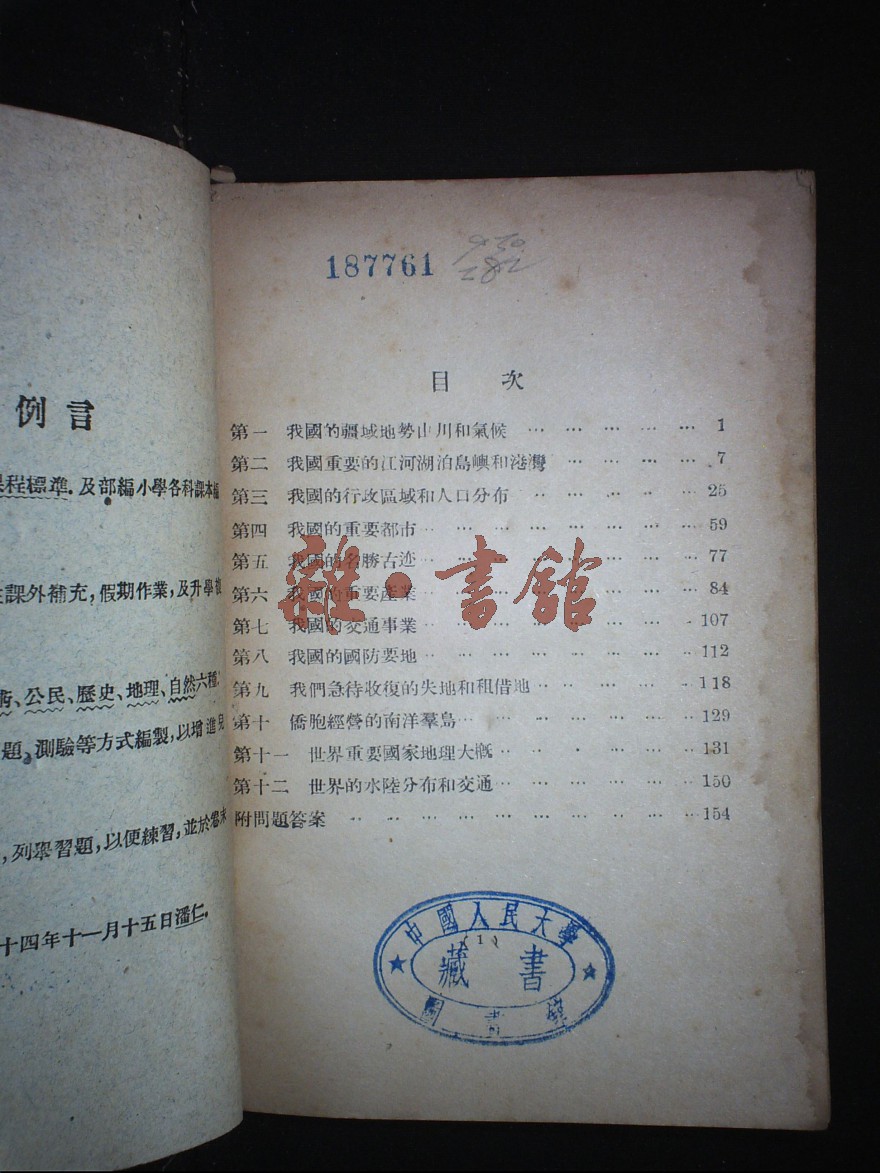 例言
課程標準.及部編小學各科課本編
課外補充,假期作業,及升學複
術、公民、歷史、地理、自然六種
題。測驗等方式編製,以增進見
,列舉習題,以便練習,並於卷末
十四年十一月十五日潘仁.
187761
目 次
第一 我國的疆域地勢山川和氣候 … … … … … … 1
第二 我國重要的江河湖泊島嶼和港灣 … … … … … 7
第三 我國的行政區域和人口分布 … … … … … … 25
第四 我國的重要都市 … … … … … … … … 59
第五 我國的名勝古迹 … … … … … … … … 77
第六 我國的重要產業 … … … … … … … … 84
第七 我國的交通事業 … … … … … … … … 107
第八 我國的國防要地 … … … … … … … … 112
第九 我們急待收復的失地和租借地 … … … … … 118
第十 僑胞經營的南洋羣島 … … … … … … … 129
第十一 世界重要國家地理大概 … … … … … … 131
第十二 世界的水陸分布和交通 … … … … … … 150
附問題答案 … … … … … … … … … … 154
雜·書館
中國人民大學
(1)
藏書
圖書館